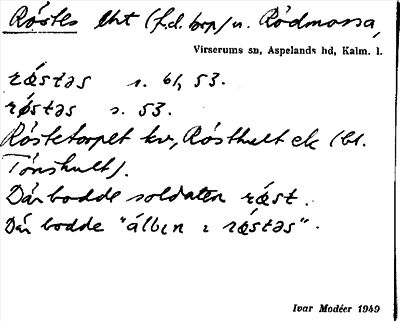 Röstes lht (f.d. torp) u. Rödmossa,
Virserums sn, Aspelands hd, Kalm. l.
rǿstəs s. 61, 53.
rǿstəs s. 53.
Röstetorpet kv, Rösthult ek (bl.
Tönshult).
Där bodde soldaten rǿst.
Där bodde "álbɩn ɩ rǿstəs".
Ivar Modéer 1949